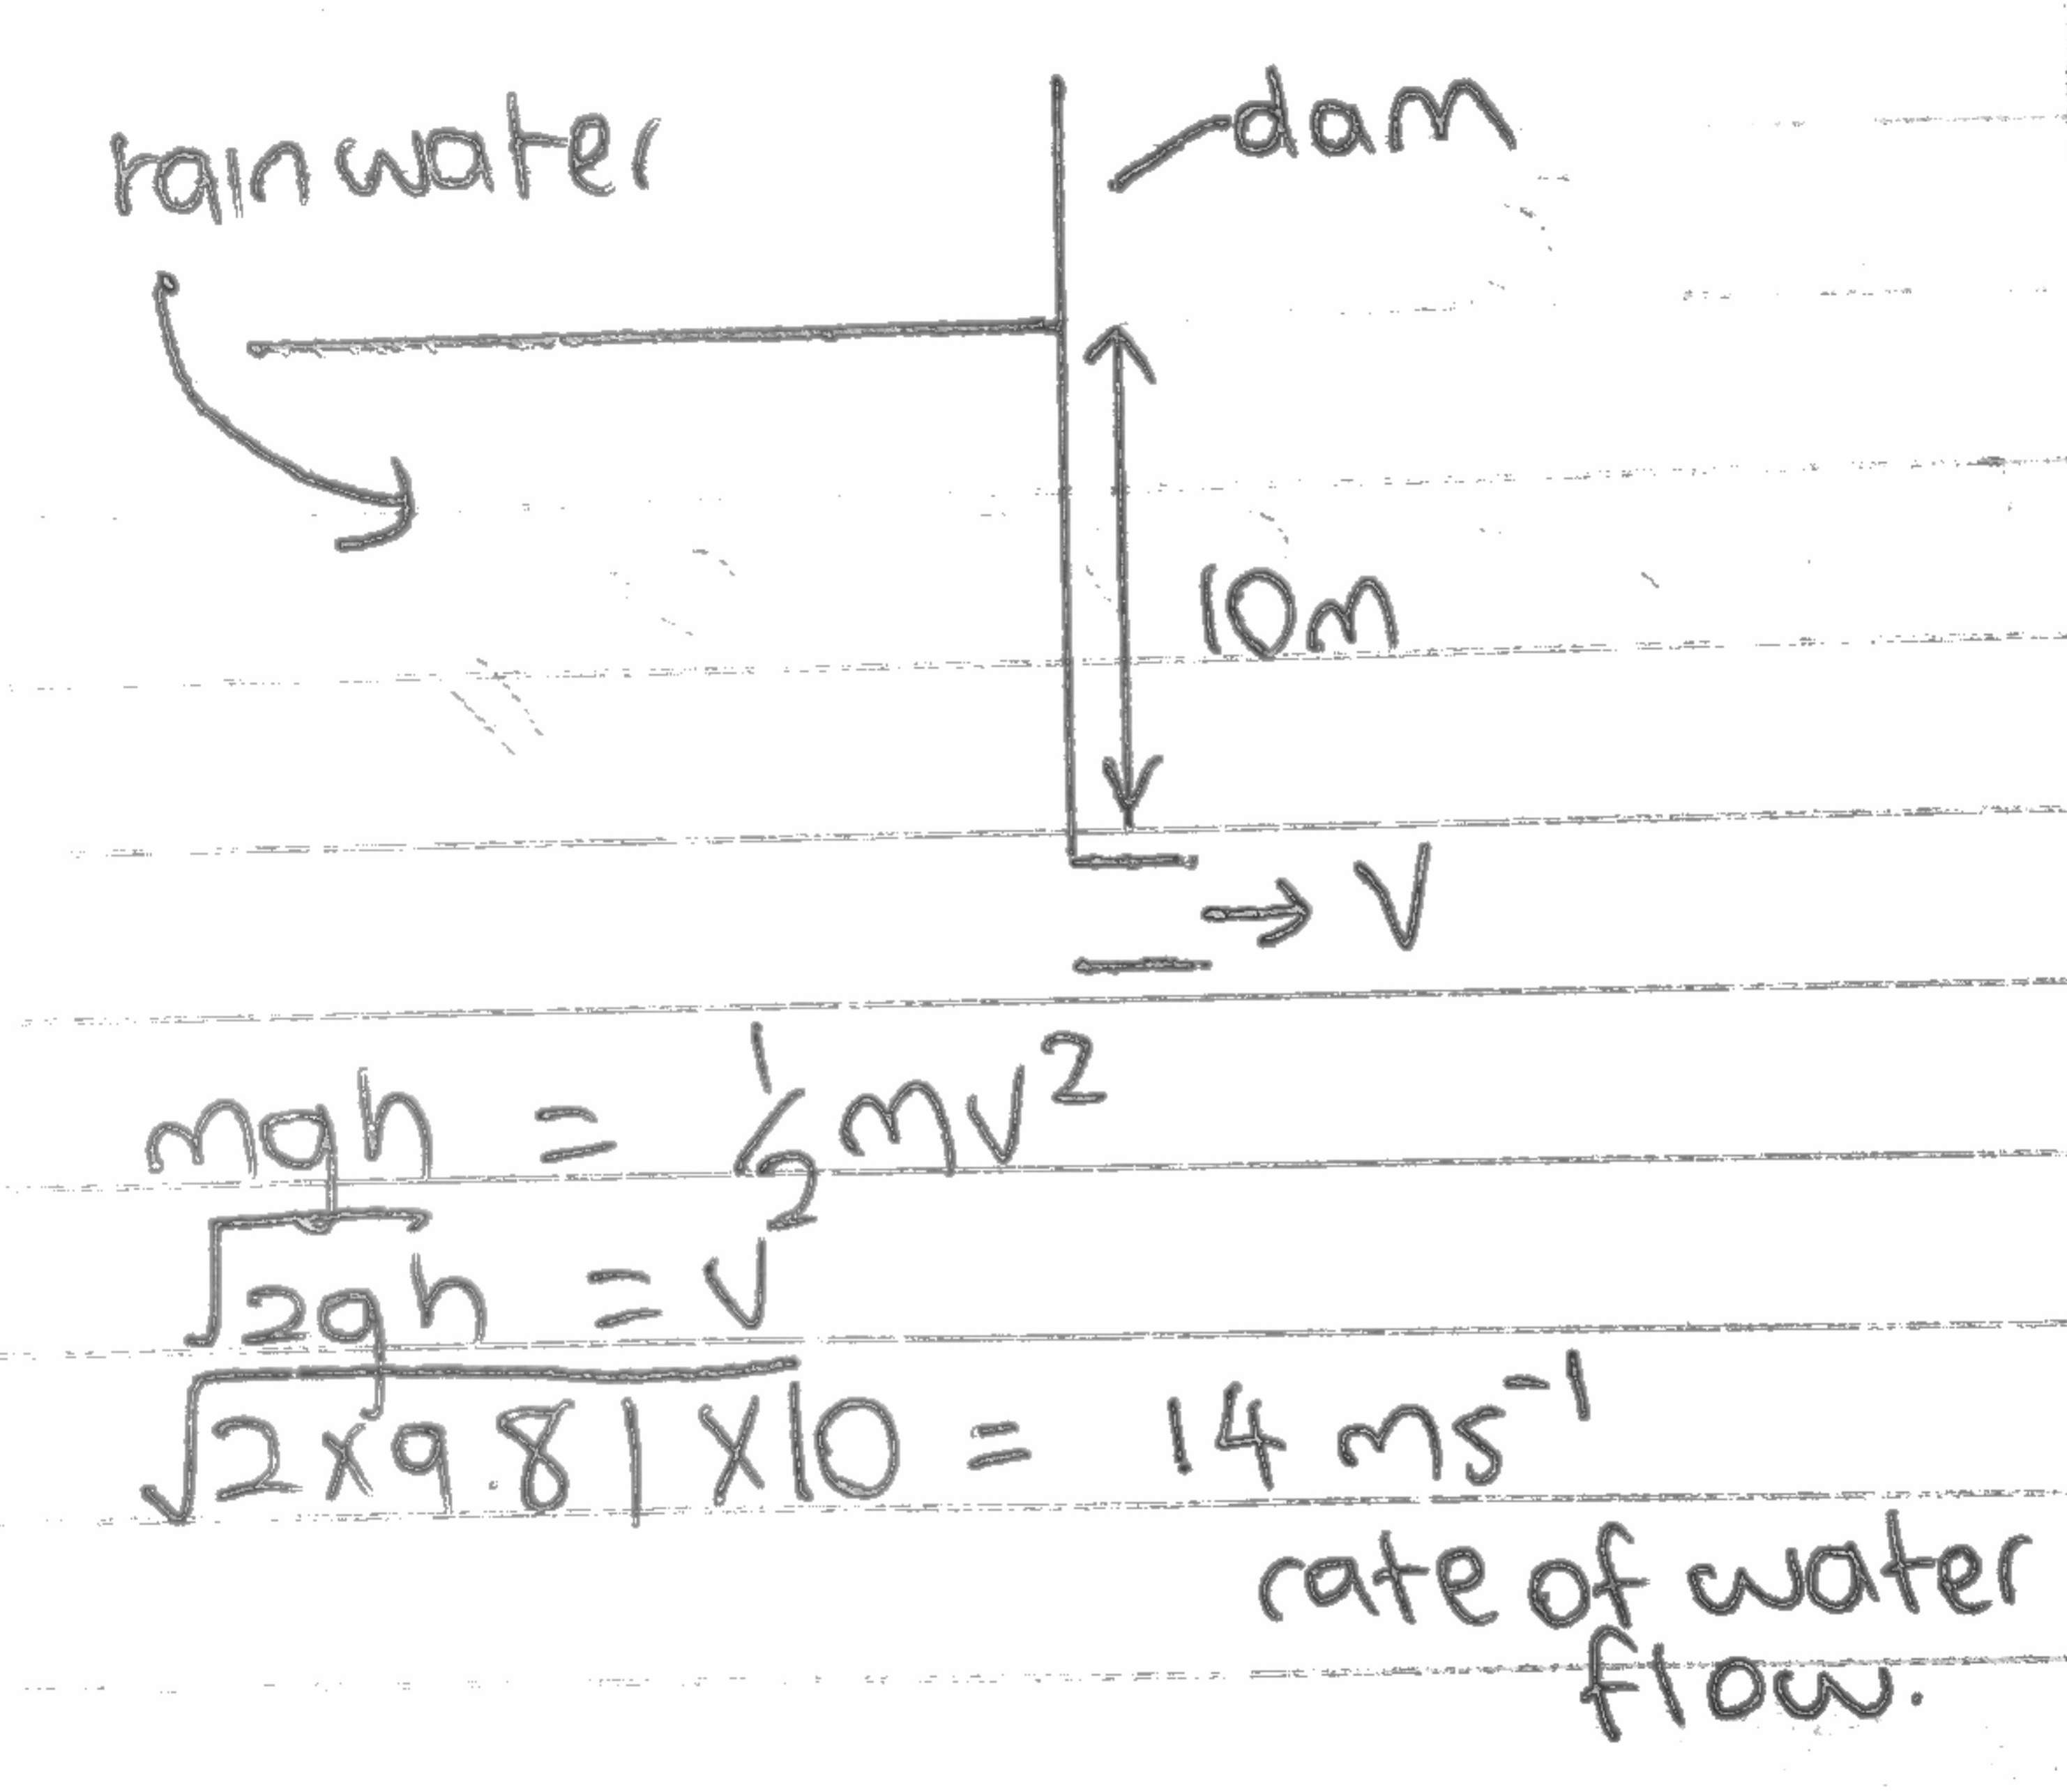 rainwater
dam
10m
V
mgh = 1/2 mv²
√2gh = v
√2×9.81×10 = 14 ms⁻¹
rate of water
flow.